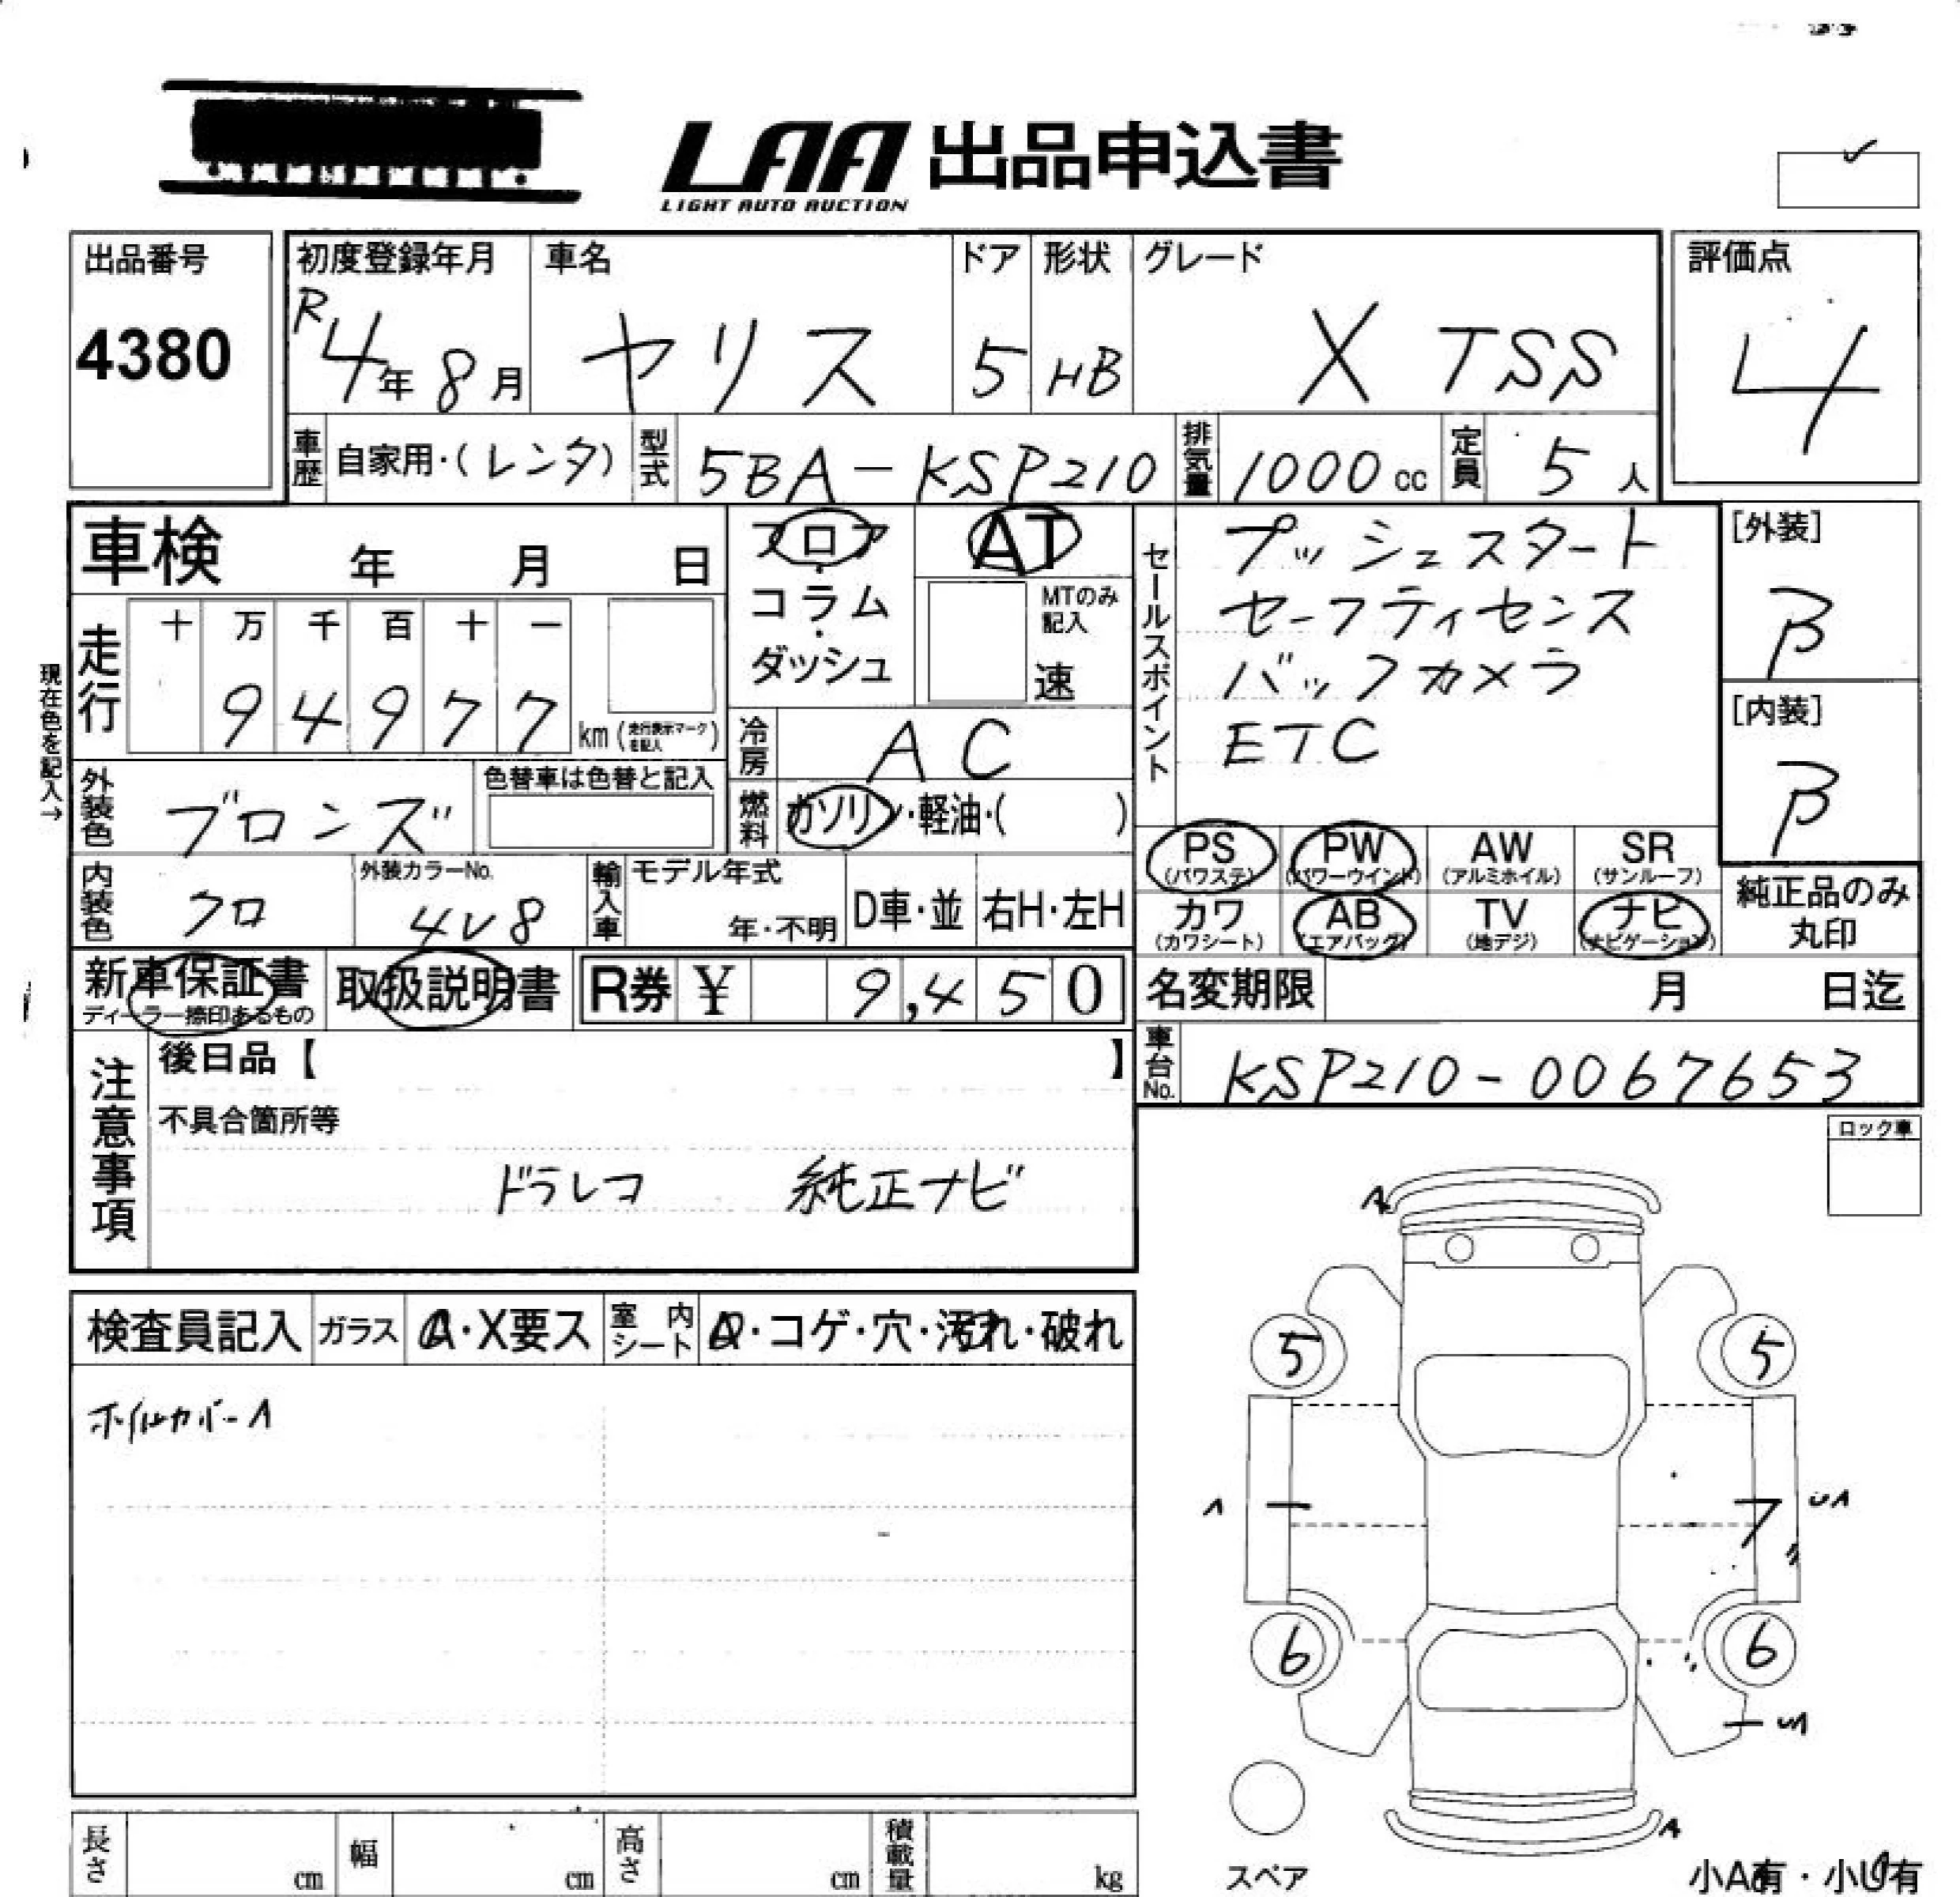 LAA 出品申込書
LIGHT AUTO AUCTION
出品番号
4380
初度登録年月
R4年8月
車名
ヤリス
ドア
5
形状
HB
グレード
X TSS
評価点
4
車歴
自家用・(レンタ)
型式
5BA-KSP210
排気量
1000cc
定員
5人
車検 年 月 日
フロア・コラム・ダッシュ
AT
MTのみ記入
速
走行
十 万 千 百 十 一
9 4 9 7 7
km (走行表示マークを記入)
現在色を記入→
冷房
AC
外装色
ブロンズ
色替車は色替と記入
燃料
ガソリン・軽油・( )
内装色
クロ
外装カラーNo.
4V8
輸入車
モデル年式
年・不明
D車・並
右H・左H
セールスポイント
プッシュスタート
セーフティセンス
バックカメラ
ETC
[外装]
B
[内装]
B
PS (パワステ)
PW (パワーウインド)
AW (アルミホイル)
SR (サンルーフ)
カワ (カワシート)
AB (エアバッグ)
TV (地デジ)
ナビ (ナビゲーション)
純正品のみ
丸印
新車保証書
ディーラー捺印あるもの
取扱説明書
R券 ¥ 9,450
名変期限 月 日迄
車台No.
KSP210-0067653
注意事項
後日品【 】
不具合箇所等
ドラレコ 純正ナビ
ロック車
検査員記入
ガラス
A・X要ス
室内シート
・コゲ・穴・汚れ・破れ
ホイルカバーA
A
5 5
A
UA
6 6
UA
A
スペア
小A有・小U有
長さ cm
幅 cm
高さ cm
積載量 kg